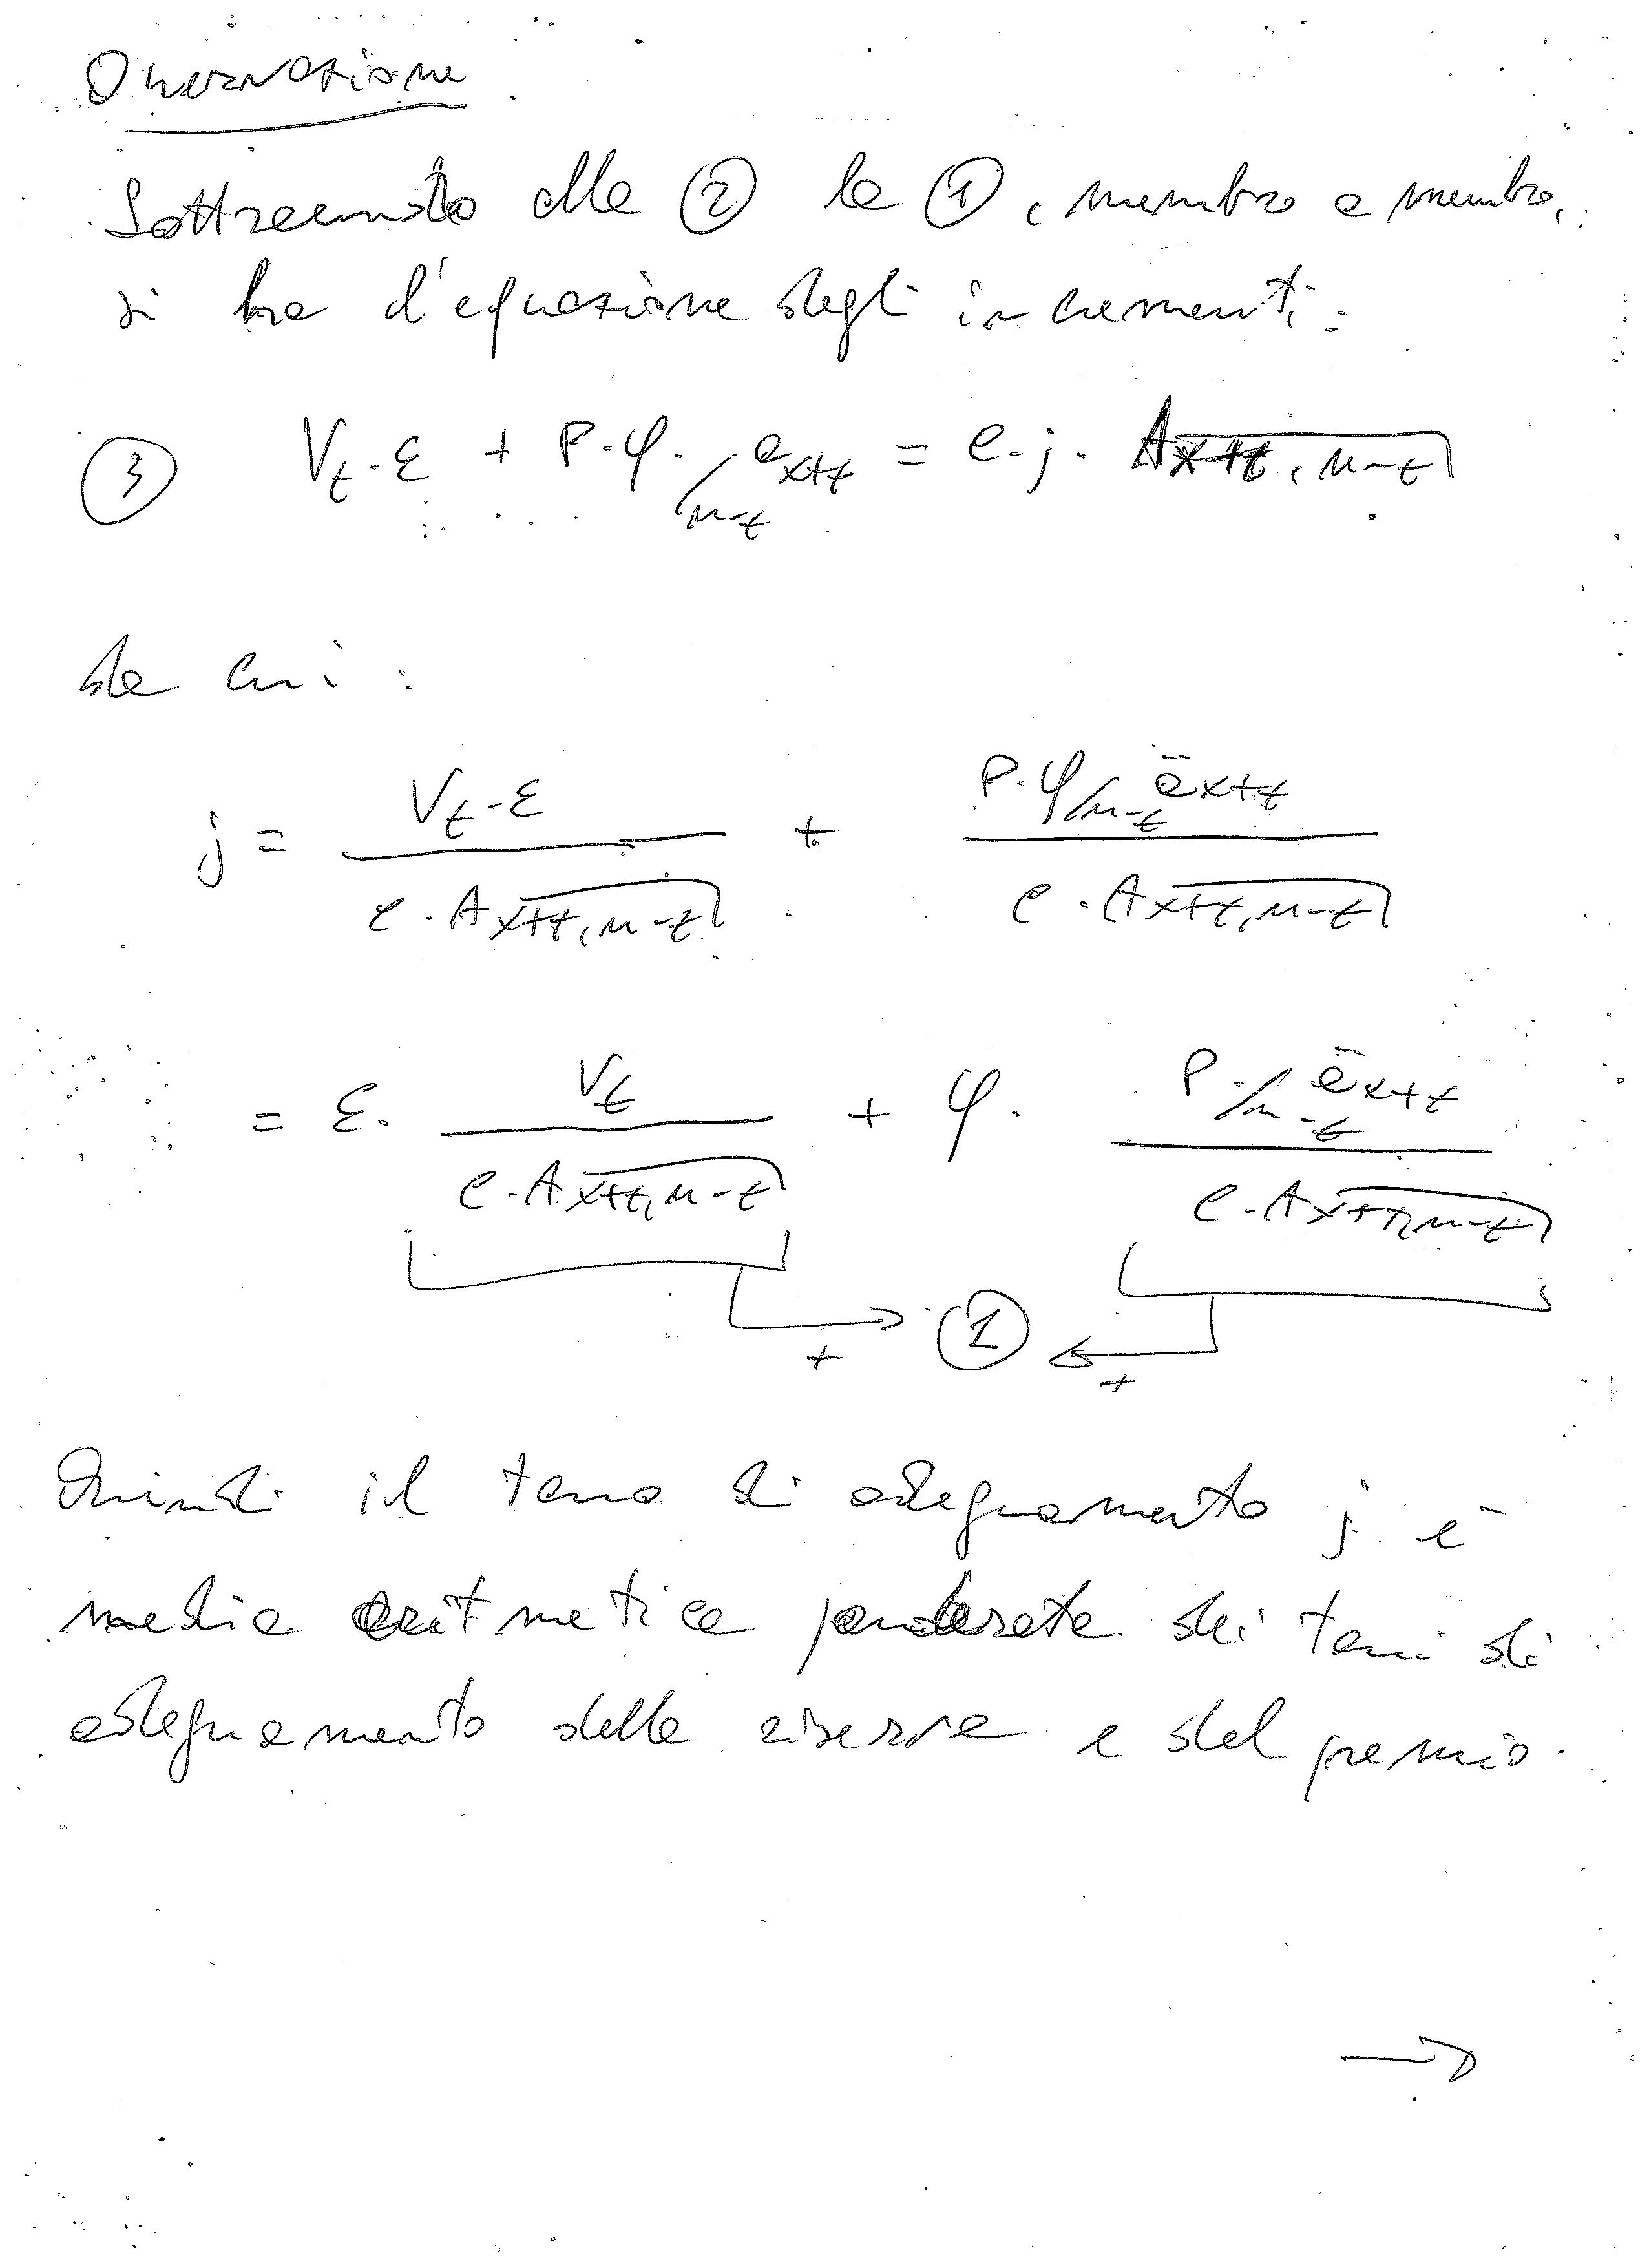 Osservazione
Sottraendo alla ② la ①, membro a membro,
si ha l'equazione degli incrementi:
③ V_t · ε + P · φ · /_{n-t} a_{x+t} = C · j · A_{x+t, n-t}⌉
da cui:
j = (V_t · ε) / (C · A_{x+t, n-t}⌉) + (P · φ /_{n-t} ä_{x+t}) / (C · A_{x+t, n-t}⌉)
= ε · V_t / (C · A_{x+t, n-t}⌉) + φ · (P · /_{n-t} ä_{x+t}) / (C · A_{x+t, n-t}⌉)
+ → ① ← +
Quindi il tasso di adeguamento j è
media aritmetica ponderata dei tassi di
adeguamento della riserva e del premio.
→